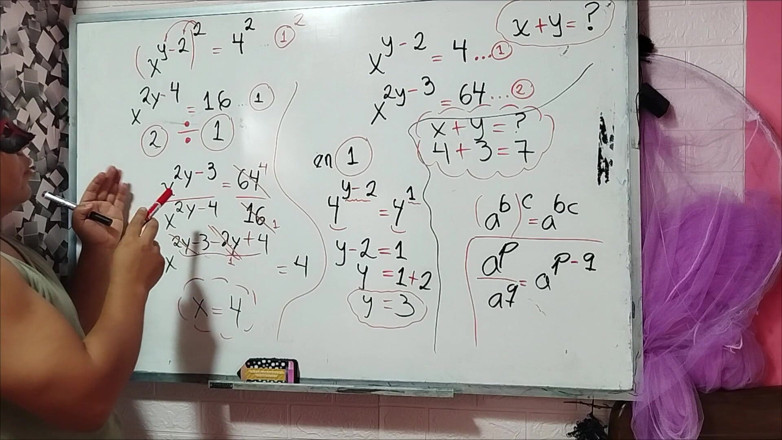 (x^(y-2))^2 = 4^2 ①^2
x^(2y-4) = 16 ...①
② ÷ ①
x^(2y-3) = 64 4
x^(2y-4) 16 1
x^(2y-3-2y+4) = 4
1
x = 4
en ①
4^(y-2) = 4^1
y-2 = 1
y = 1+2
y = 3
x+y = ?
x^(y-2) = 4 ...①
x^(2y-3) = 64 ...②
x+y = ?
4+3 = 7
(a^b)^c = a^(bc)
a^p/a^q = a^(p-q)